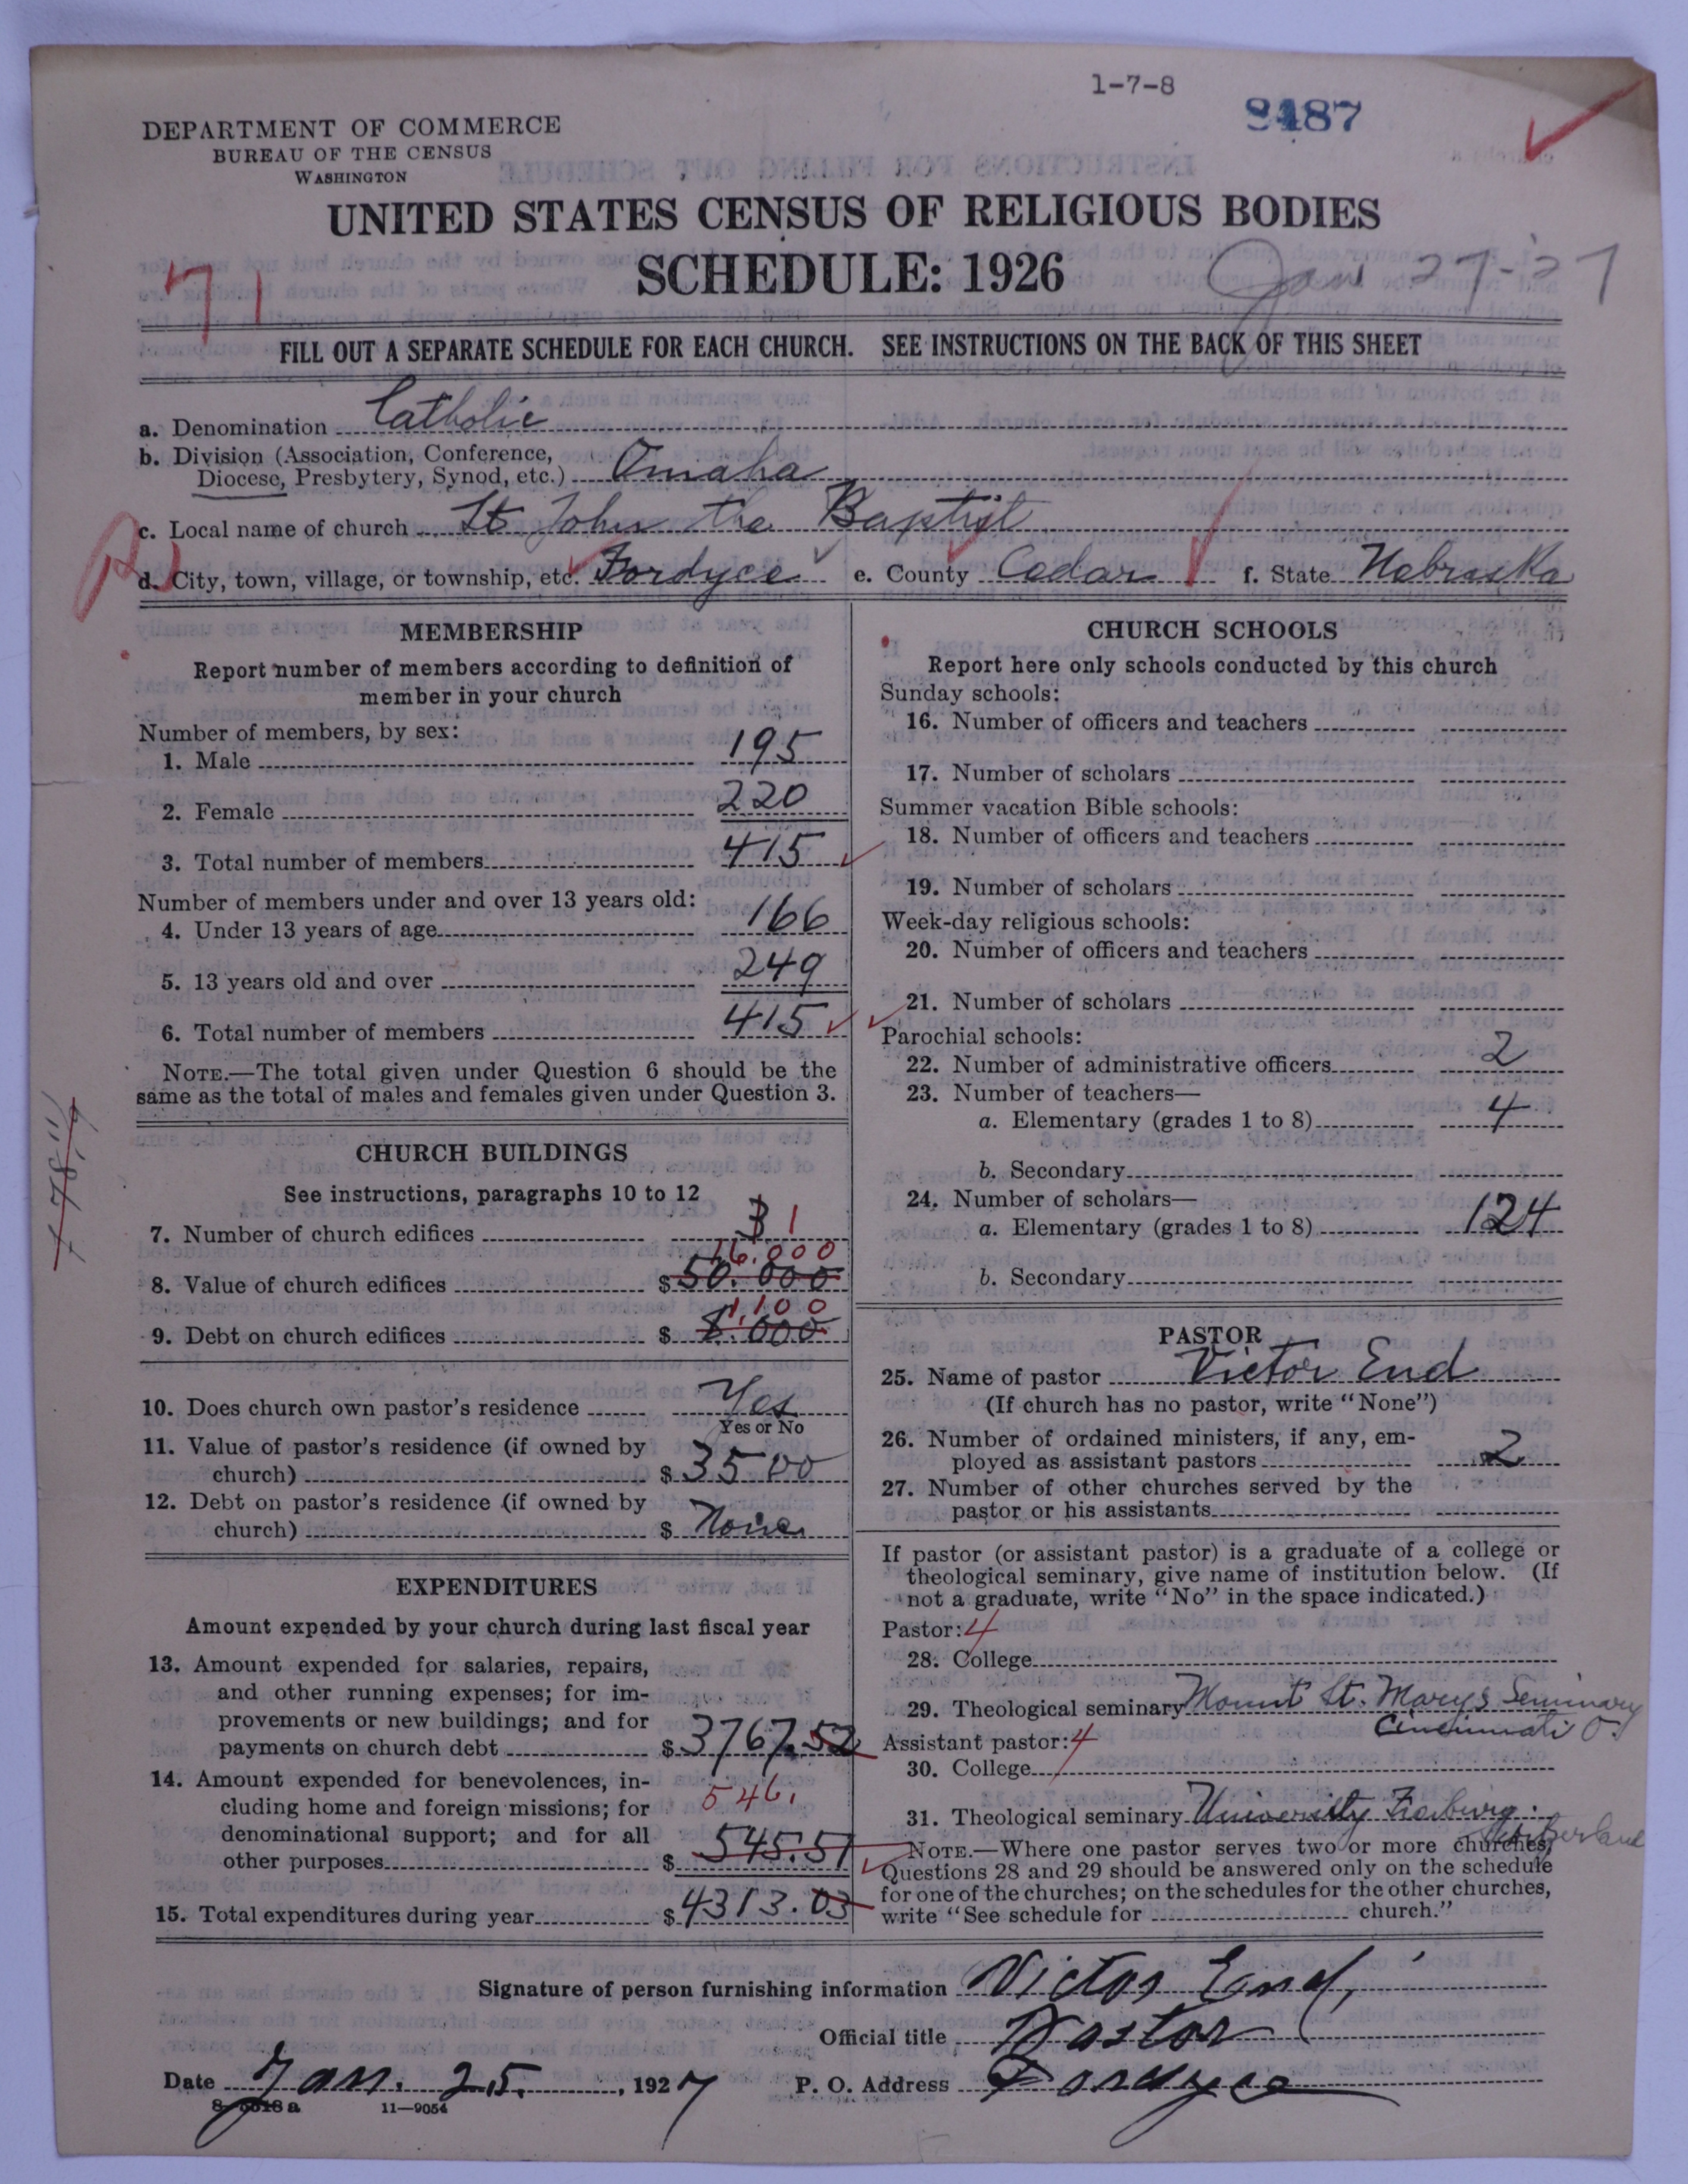 1-7-8
8487
DEPARTMENT OF COMMERCE
BUREAU OF THE CENSUS
WASHINGTON
UNITED STATES CENSUS OF RELIGIOUS BODIES
SCHEDULE: 1926
Jan 27-27
71
FILL OUT A SEPARATE SCHEDULE FOR EACH CHURCH. SEE INSTRUCTIONS ON THE BACK OF THIS SHEET
a. Denomination Catholic
b. Division (Association, Conference,
Diocese, Presbytery, Synod, etc.) Omaha
c. Local name of church St John the Baptist
d. City, town, village, or township, etc. Fordyce e. County Cedar f. State Nebraska
MEMBERSHIP
Report number of members according to definition of
member in your church
Number of members, by sex:
1. Male 195
2. Female 220
3. Total number of members 415
Number of members under and over 13 years old:
4. Under 13 years of age 166
5. 13 years old and over 249
6. Total number of members 415
NOTE.—The total given under Question 6 should be the
same as the total of males and females given under Question 3.
CHURCH BUILDINGS
See instructions, paragraphs 10 to 12
7. Number of church edifices 3 1
16.000
8. Value of church edifices $ 50.000
1,100
9. Debt on church edifices $ .000
10. Does church own pastor's residence Yes
Yes or No
11. Value of pastor's residence (if owned by
church) $ 3500
12. Debt on pastor's residence (if owned by
church) $ None
EXPENDITURES
Amount expended by your church during last fiscal year
13. Amount expended for salaries, repairs,
and other running expenses; for im-
provements or new buildings; and for
payments on church debt $ 3767.52
14. Amount expended for benevolences, in-
cluding home and foreign missions; for 546.
denominational support; and for all
other purposes $ 545.51
15. Total expenditures during year $ 4313.03
CHURCH SCHOOLS
Report here only schools conducted by this church
Sunday schools:
16. Number of officers and teachers
17. Number of scholars
Summer vacation Bible schools:
18. Number of officers and teachers
19. Number of scholars
Week-day religious schools:
20. Number of officers and teachers
21. Number of scholars
Parochial schools:
22. Number of administrative officers 2
23. Number of teachers—
a. Elementary (grades 1 to 8) 4
b. Secondary
24. Number of scholars—
a. Elementary (grades 1 to 8) 124
b. Secondary
PASTOR
25. Name of pastor Victor End
(If church has no pastor, write "None")
26. Number of ordained ministers, if any, em-
ployed as assistant pastors 2
27. Number of other churches served by the
pastor or his assistants
If pastor (or assistant pastor) is a graduate of a college or
theological seminary, give name of institution below. (If
not a graduate, write "No" in the space indicated.)
Pastor: 4
28. College
29. Theological seminary Mount St. Mary's Seminary
Cincinnati O.
Assistant pastor: 4
30. College
31. Theological seminary University
NOTE.—Where one pastor serves two or more churches,
Questions 28 and 29 should be answered only on the schedule
for one of the churches; on the schedules for the other churches,
write "See schedule for church."
Signature of person furnishing information Victor End,
Official title Pastor
Date Jan. 25. , 1927 P. O. Address Fordyce
8-5518a 11—9054